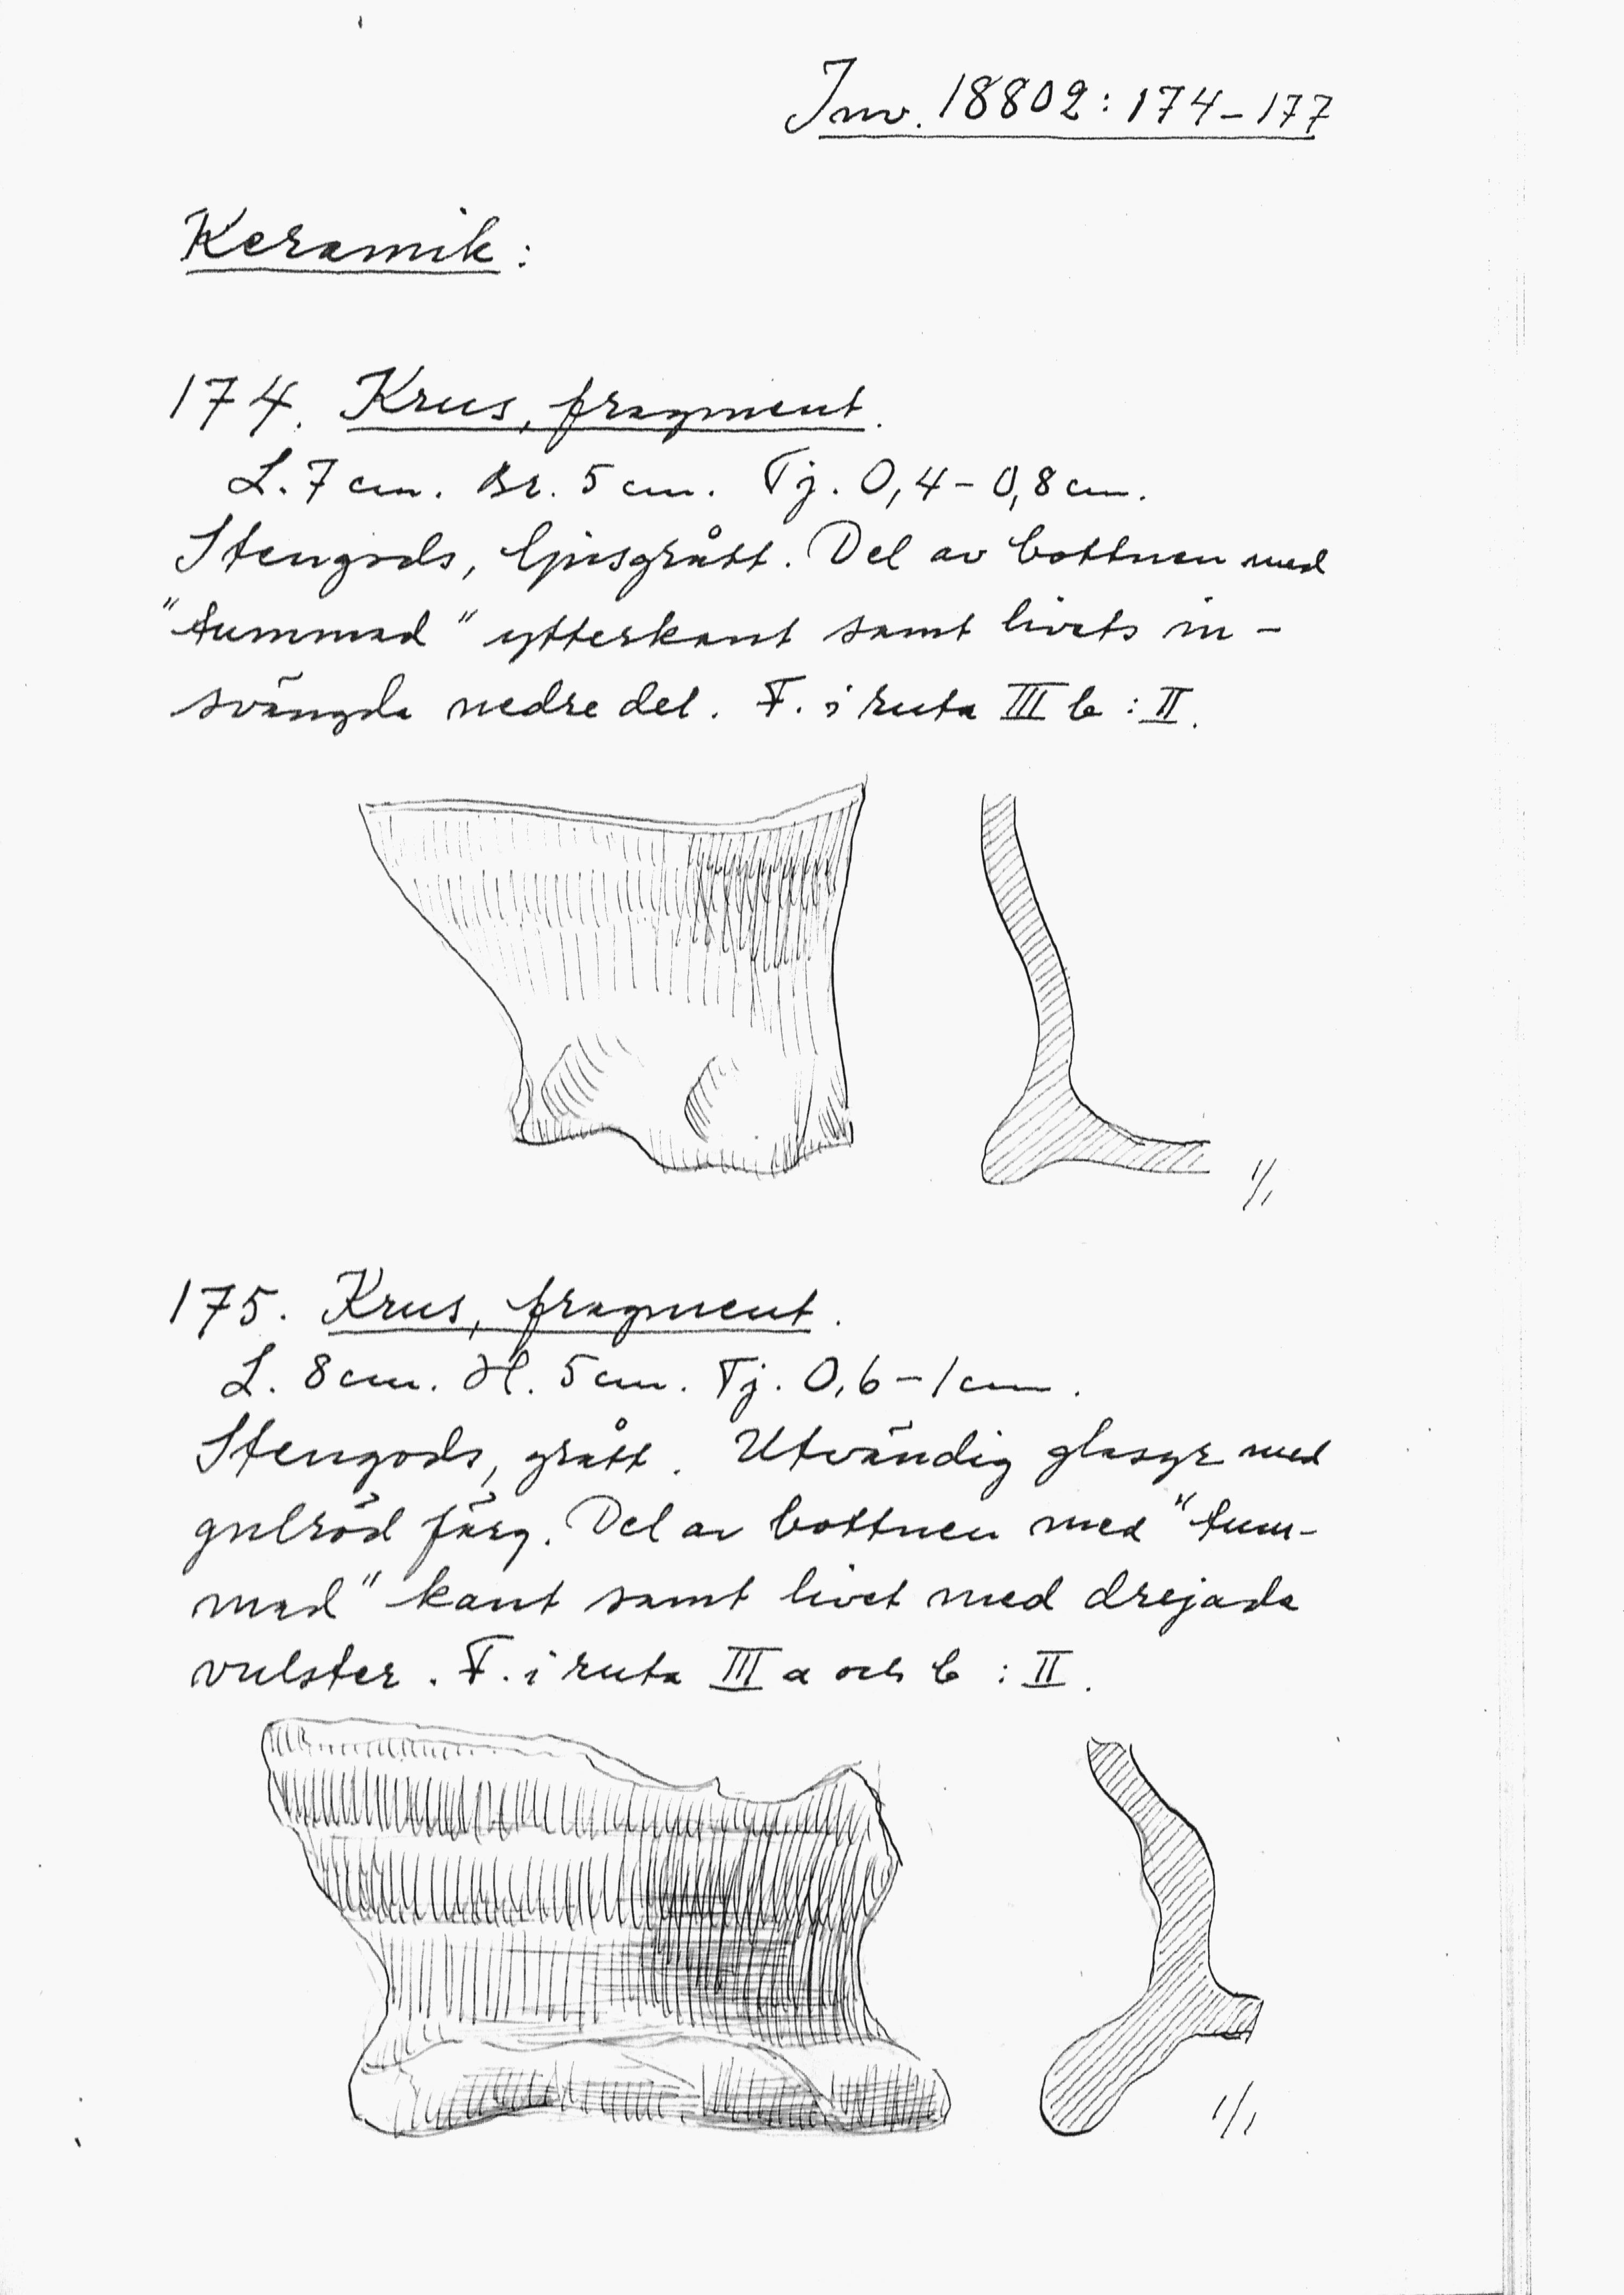 Inv. 18802: 174-177
Keramik:
174. Krus, fragment.
L. 7 cm. Br. 5 cm. Tj. 0,4-0,8 cm.
Stengods, ljusgrått. Del av bottnen med
"tummad" ytterkant samt livets in-
svängda nedre del. F. i ruta III b : II.
1/1
175. Krus, fragment.
L. 8 cm. H. 5 cm. Tj. 0,6-1 cm.
Stengods, grått. Utvändig glasyr med
gulröd färg. Del av bottnen med "tum-
mad" kant samt livet med drejade
vulster. F. i ruta III a och b : II.
1/1